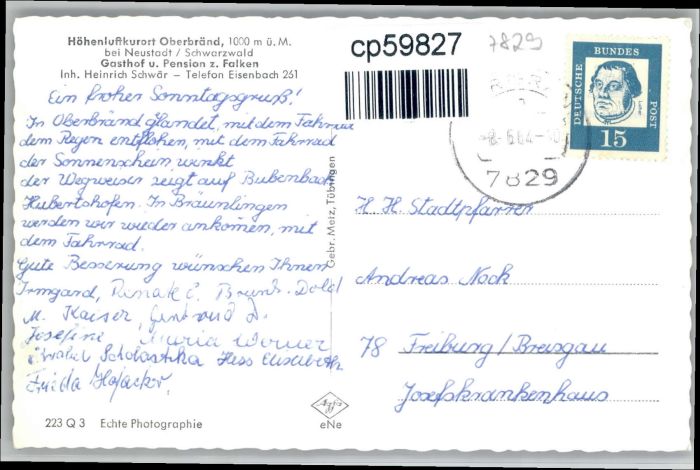 Höhenluftkurort Oberbränd, 1000 m ü. M.
bei Neustadt / Schwarzwald
Gasthof u. Pension z. Falken
Inh. Heinrich Schwär – Telefon Eisenbach 261
cp59827
7829
DEUTSCHE BUNDES POST
15
7829
Ein froher Sonntagsgruß!
In Oberbränd gelandet, mit dem Fahrrad
dem Regen entflohen, mit dem Fahrrad
der Sonnenschein winkt
der Wegweiser zeigt auf Bubenbach
Hubertshofen. In Bräunlingen
werden wir wieder ankommen, mit
dem Fahrrad.
Gute Besserung wünschen Ihnen
Irmgard, Renate E. Dold
M. Kaiser, Gertrud D.
Josefine Maria Werner
Scholastika Hess Elisabeth
Frieda Hofacker.
Gebr. Metz, Tübingen
H. H. Stadtpfarrer
Andreas Nock
78 Freiburg / Breisgau
Josefskrankenhaus
223 Q 3 Echte Photographie
Agfa
eNe